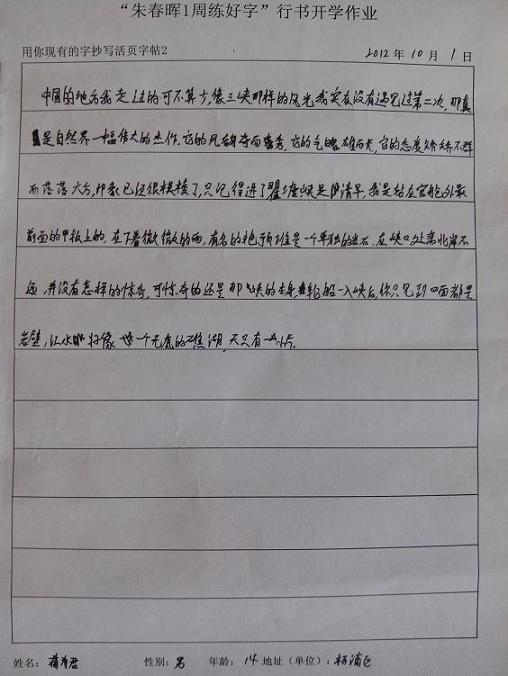 “朱春晖1周练好字”行书开学作业
用你现有的字抄写活页字帖2 2012年10月1日
中国的地方我走过的可不算少,像三峡那样的风光我实在没有遇见过第二次,那真
是自然界一幅伟大的杰作,它的风韵奇而秀,它的气魄雄而光,它的态度矫矫不群
而落落大方,印象已还很模棱了,只记得进了瞿塘峡是阴清早,我是站在官舱外最
前面的甲板上的,在下着微微的雨,有名的艳预堆是一个单独的岩石,在峡口处离北岸不
远,并没有怎样的惊奇,可惊奇的还是那峡的本身,轮船一入峡后,你只见到四面都是
岩壁,江水好像一个无底的礁湖,天只有一小片。
姓名: 性别:男 年龄:14 地址(单位):杨浦区